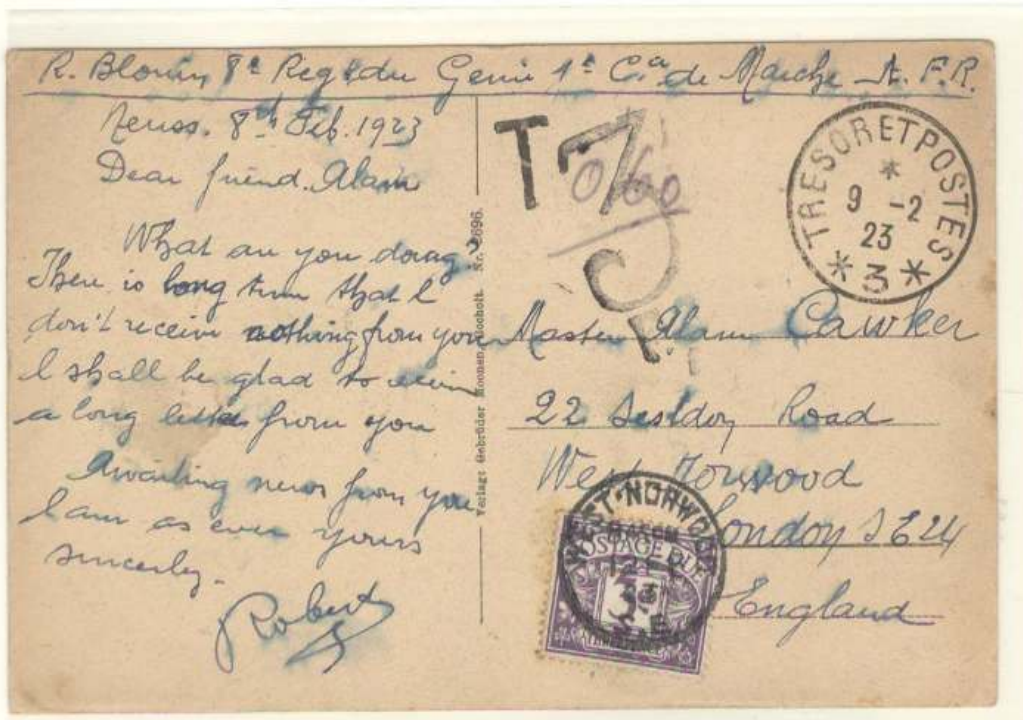 R. Blouin 8e Regt du Genie 1e Cie de Marche A. F. R.
Neuss. 8th Feb. 1923
Dear friend. Alan
What are you doing?
There is long time that I
don't receive nothing from you
I shall be glad to receive
a long letter from you
Awaiting news from you
I am as ever yours
sincerely.
Robert
Verlag: Gebrüder Koonen, Bocholt. Nr. 8696.
T
0/60
TRESOR ET POSTES
*
9 -2
23
* 3 *
Master Alan Cawker
22 Road
West Norwood
London S E 24
England
WEST·NORWOOD
POSTAGE DUE
3D